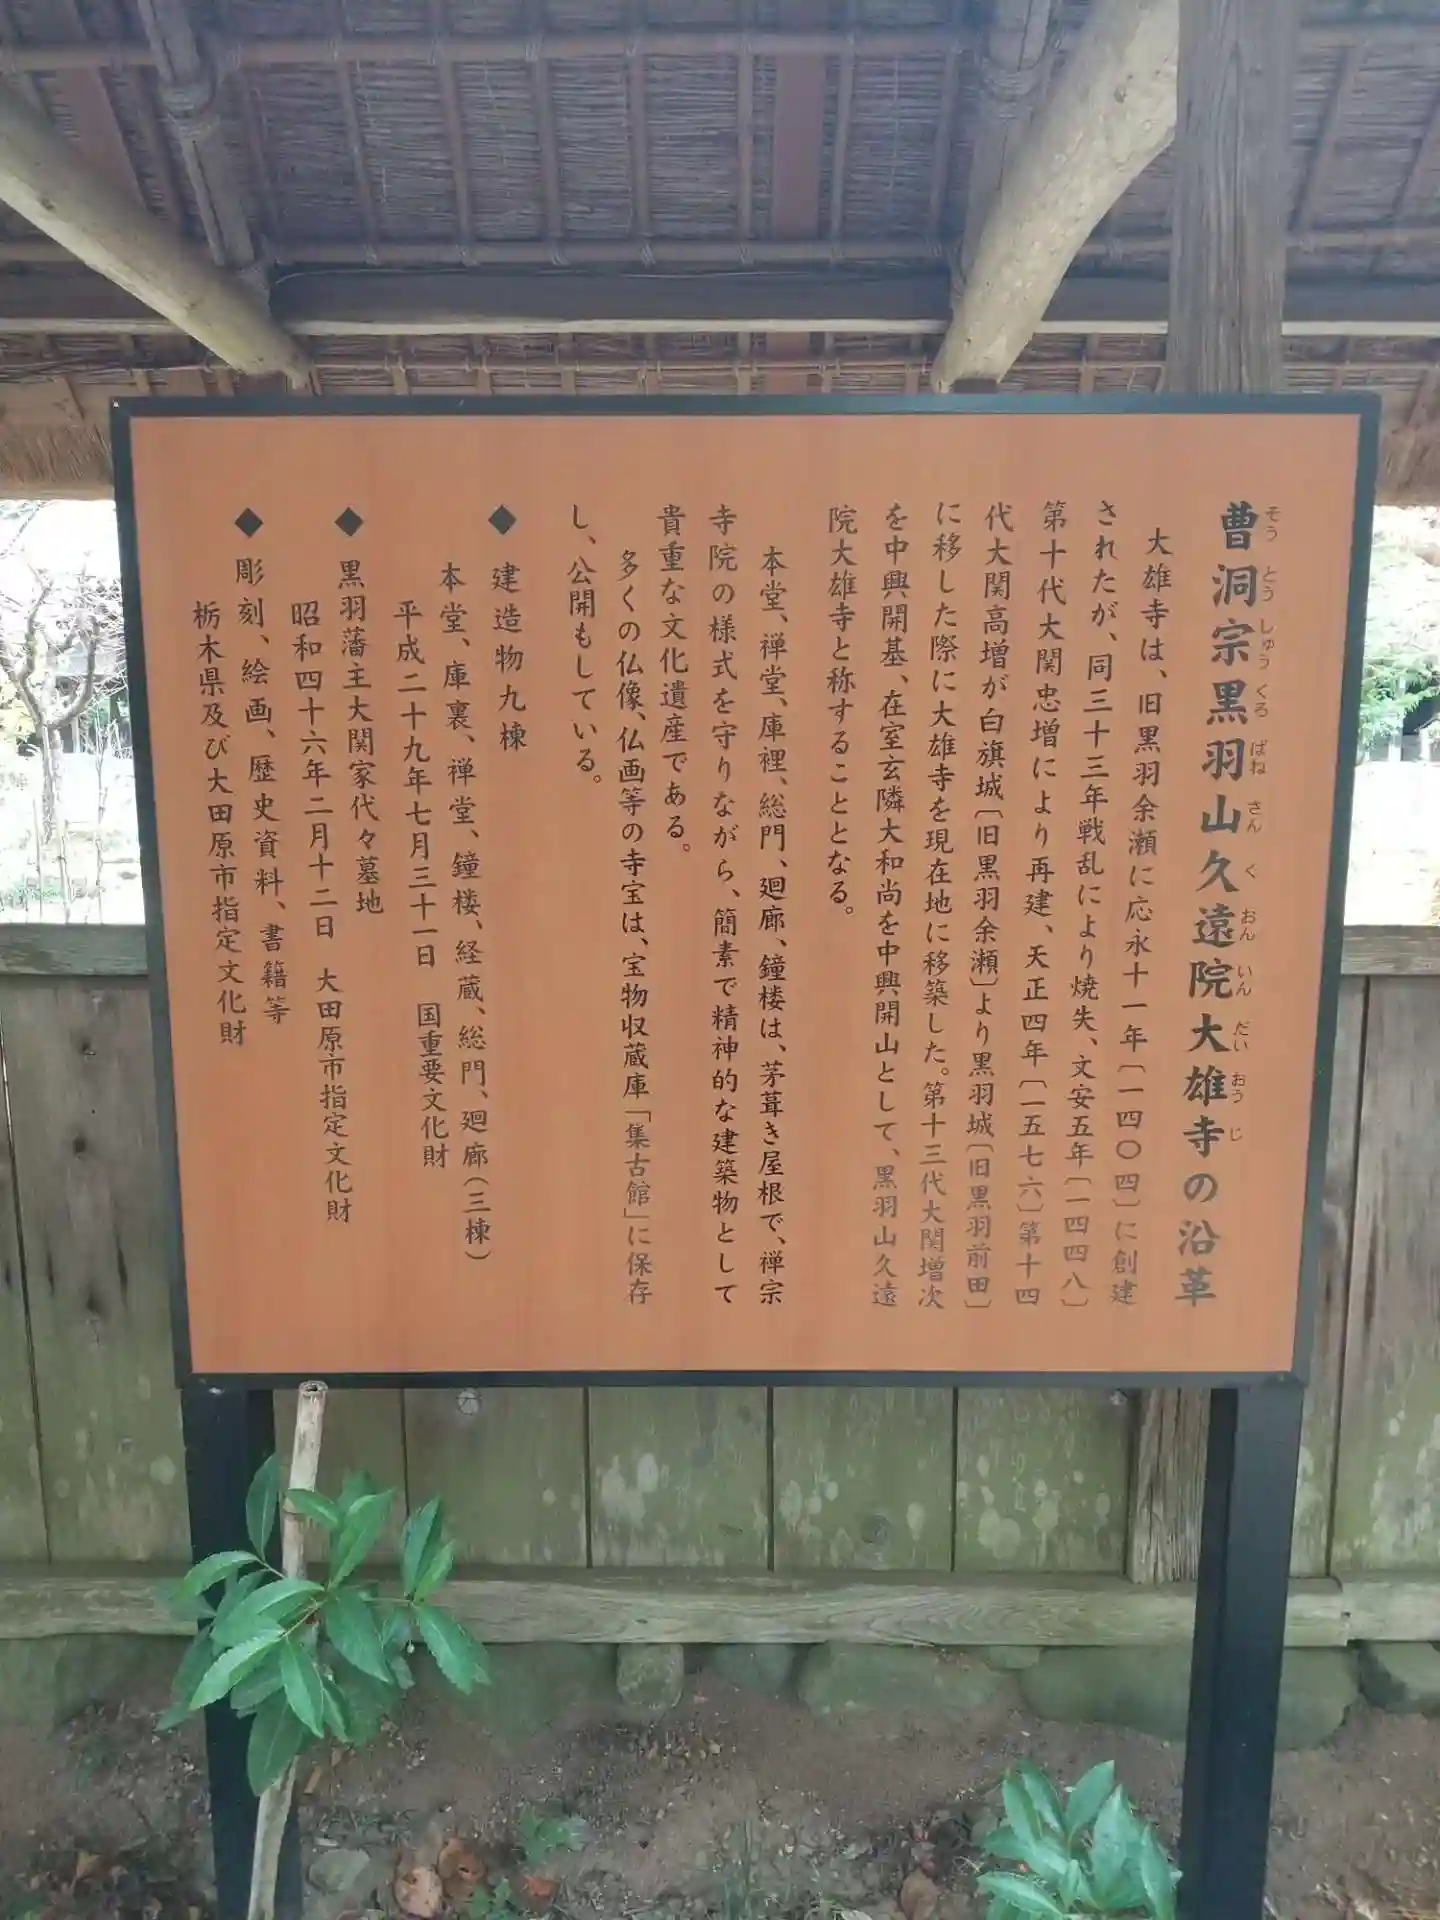 曹洞宗黒羽山久遠院大雄寺の沿革
そうとうしゅうくろばねさんくおんいんだいおうじ
大雄寺は、旧黒羽余瀬に応永十一年〔一四〇四〕に創建
されたが、同三十三年戦乱により焼失、文安五年〔一四四八〕
第十代大関忠増により再建、天正四年〔一五七六〕第十四
代大関高増が白旗城〔旧黒羽余瀬〕より黒羽城〔旧黒羽前田〕
に移した際に大雄寺を現在地に移築した。第十三代大関増次
を中興開基、在室玄隣大和尚を中興開山として、黒羽山久遠
院大雄寺と称することとなる。
本堂、禅堂、庫裡、総門、廻廊、鐘楼は、茅葺き屋根で、禅宗
寺院の様式を守りながら、簡素で精神的な建築物として
貴重な文化遺産である。
多くの仏像、仏画等の寺宝は、宝物収蔵庫「集古館」に保存
し、公開もしている。
◆ 建造物九棟
本堂、庫裏、禅堂、鐘楼、経蔵、総門、廻廊（三棟）
平成二十九年七月三十一日 国重要文化財
◆ 黒羽藩主大関家代々墓地
昭和四十六年二月十二日 大田原市指定文化財
◆ 彫刻、絵画、歴史資料、書籍等
栃木県及び大田原市指定文化財